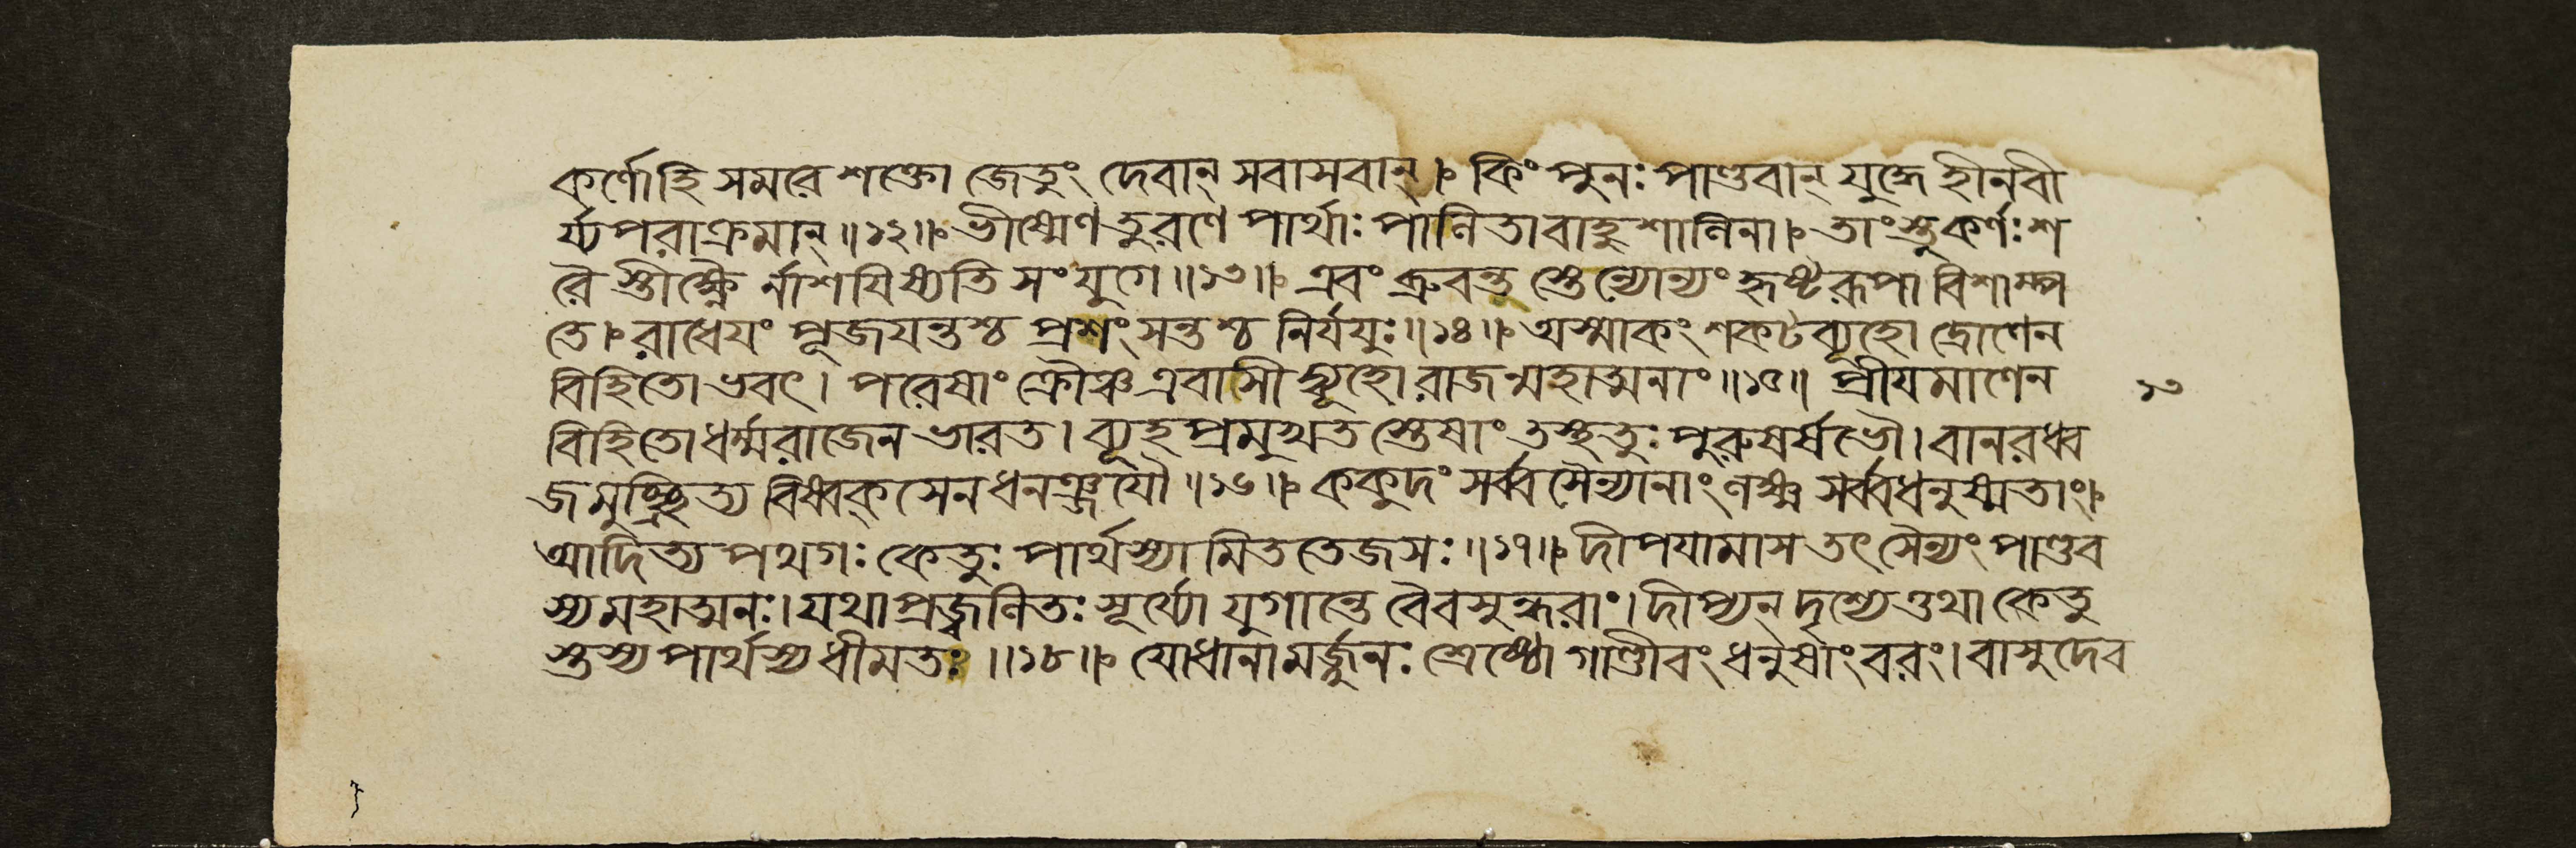 কর্ণোহি সমরে শক্তো জেতুং দেবান্ সবাসবান্। কিং পুনঃ পাণ্ডবান্ যুদ্ধে হীনবী
র্য্যপরাক্রমান্॥১২॥ ভীষ্মেণ তু রণে পার্থাঃ পালিতা বাহুশালিনা। তাংস্তু কর্ণঃ শ
রৈ স্তীক্ষ্ণৈ র্নাশযিষ্যতি সংযুগে॥১৩॥ এবং ব্রুবন্ত স্তেন্যোন্যং হৃষ্টরূপা বিশাম্প
তে। রাধেযং পূজযন্তশ্চ প্রশংসন্তশ্চ নির্যযুঃ॥১৪॥ অস্মাকং শকটব্যূহো দ্রোণেন
বিহিতো ভবৎ। পরেষাং ক্রৌঞ্চ এবাসী দ্ব্যূহো রাজন্মহাত্মনাং॥১৫॥ প্রীযমাণেন
১৩
বিহিতো ধর্ম্মরাজেন ভারত। ব্যূহপ্রমুখত স্তেষাং তস্থতুঃ পুরুষর্ষভৌ। বানরধ্ব
জমুচ্ছ্রিত্য বিষ্বক্সেনধনঞ্জযৌ॥১৬॥ ককুদং সর্ব্বসৈন্যানাং লক্ষ্ম সর্ব্বধনুষ্মতাং।
আদিত্যপথগঃ কেতুঃ পার্থস্যামিততেজসঃ॥১৭॥ দীপযামাস তৎ সৈন্যং পাণ্ডব
স্য মহাত্মনঃ। যথা প্রজ্বলিতঃ সূর্য্যো যুগান্তে বৈ বসুন্ধরাং। দীপ্যন্ দৃশ্যে তথা কেতু
স্তস্য পার্থস্য ধীমতঃ॥১৮॥ যোধানামর্জ্জুনঃ শ্রেষ্ঠো গাণ্ডীবং ধনুষাং বরং। বাসুদেব